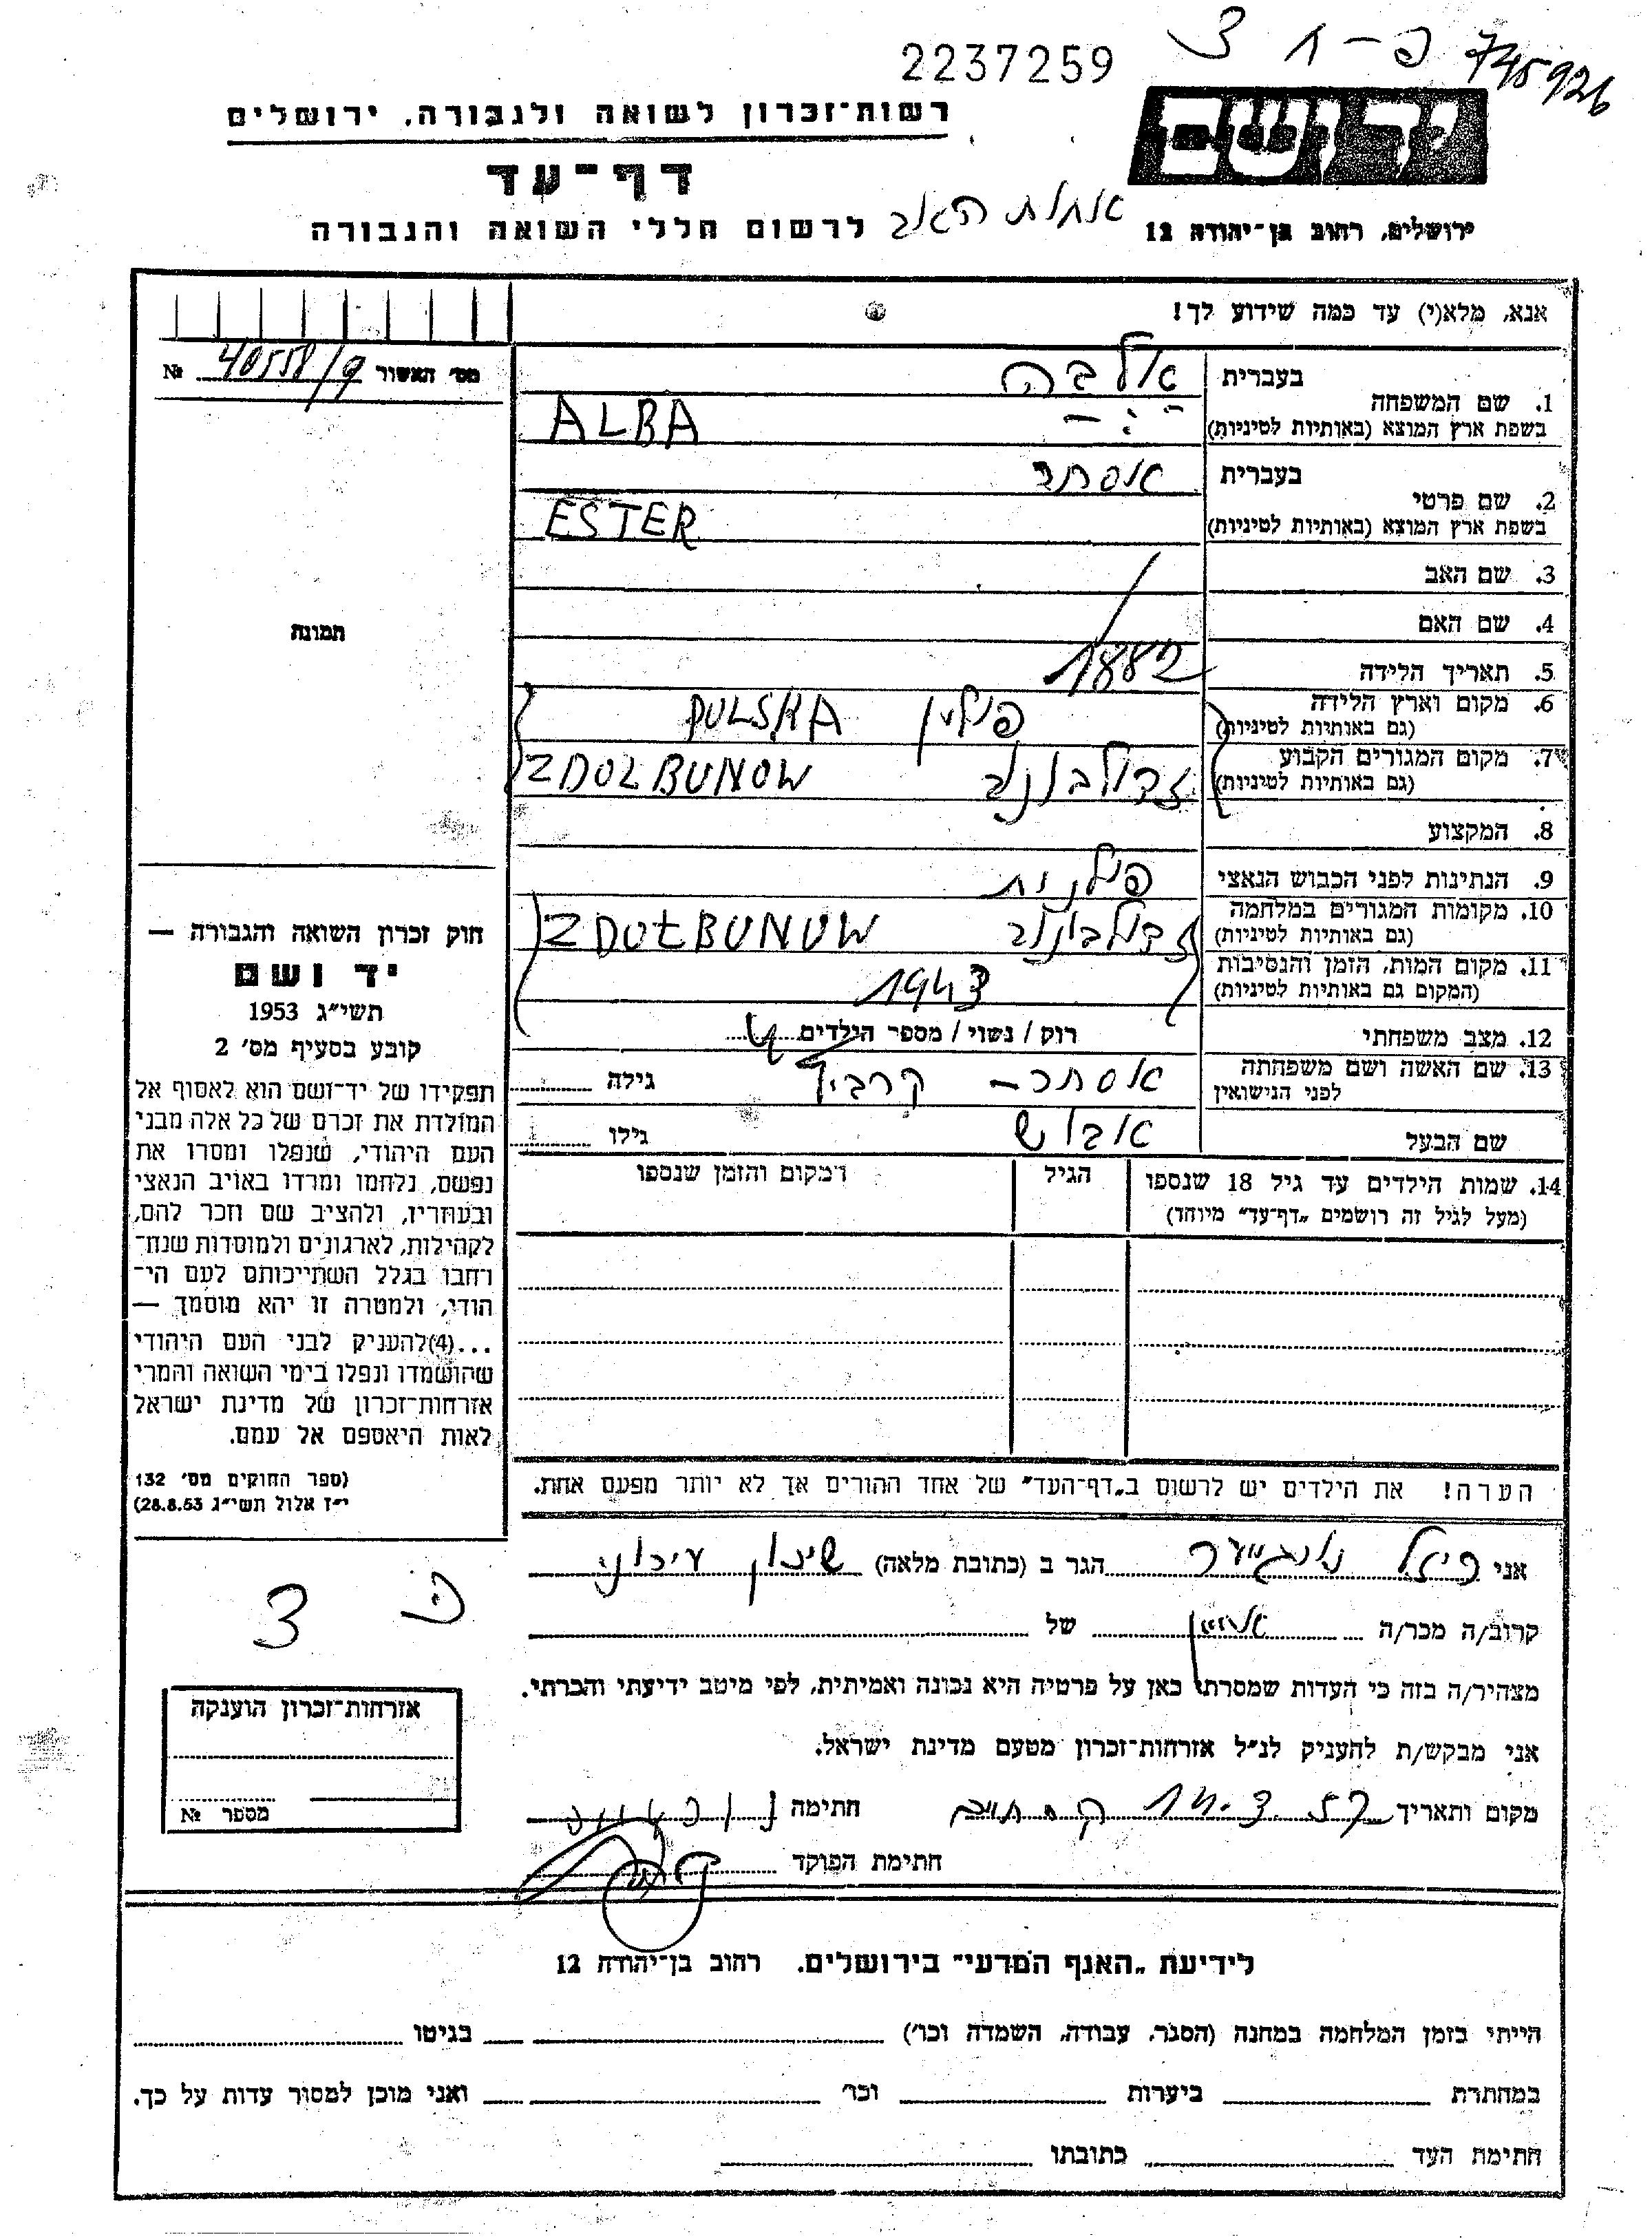 2237259
745926
רשות־זכרון לשואה ולגבורה, ירושלים
יד ושם
דף־עד
לרשום חללי השואה והגבורה
ירושלים, רחוב בן־יהודה 12
אנא, מלא(י) עד כמה שידוע לך!
מס׳ האשור 40558/9 №
בעברית אלבה
1. שם המשפחה
בשפת ארץ המוצא (באותיות לטיניות) ALBA
בעברית אסתר
2. שם פרטי
בשפת ארץ המוצא (באותיות לטיניות) ESTER
3. שם האב
4. שם האם
5. תאריך הלידה 1882
6. מקום וארץ הלידה
(גם באותיות לטיניות) פולין POLSKA
7. מקום המגורים הקבוע
(גם באותיות לטיניות) זדולבונוב ZDOLBUNOW
8. המקצוע
9. הנתינות לפני הכבוש הנאצי פולנית
10. מקומות המגורים במלחמה
(גם באותיות לטיניות) זדולבונוב ZDOŁBUNOW
11. מקום המות, הזמן והנסיבות
(המקום גם באותיות לטיניות) 1943
12. מצב משפחתי רוק / נשוי / מספר הילדים
13. שם האשה ושם משפחתה
לפני הנישואין אסתר – גילה
שם הבעל גילו
14. שמות הילדים עד גיל 18 שנספו הגיל המקום והזמן שנספו
(מעל לגיל זה רושמים „דף־עד״ מיוחד)
הערה! את הילדים יש לרשום ב„דף־העד״ של אחד ההורים אך לא יותר מפעם אחת.
תמונה
חוק זכרון השואה והגבורה —
יד ושם
תשי״ג 1953
קובע בסעיף מס׳ 2
תפקידו של יד־ושם הוא לאסוף אל
המולדת את זכרם של כל אלה מבני
העם היהודי, שנפלו ומסרו את
נפשם, נלחמו ומרדו באויב הנאצי
ובעוזריו, ולהציב שם וזכר להם,
לקהילות, לארגונים ולמוסדות שנח־
רחבו בגלל השתייכותם לעם הי־
הודי, ולמטרה זו יהא מוסמך —
...(4)להעניק לבני העם היהודי
שהושמדו ונפלו בימי השואה והמרי
אזרחות־זכרון של מדינת ישראל
לאות היאספם אל עמם.
(ספר החוקים מס׳ 132
י״ז אלול תשי״ג 28.8.53)
אני הגר ב (כתובת מלאה) שיכון עירוני
קרוב/ה מכר/ה של
מצהיר/ה בזה כי העדות שמסרתי כאן על פרטיה היא נכונה ואמיתית, לפי מיטב ידיעתי והכרתי.
אני מבקש/ת להעניק לנ״ל אזרחות־זכרון מטעם מדינת ישראל.
מקום ותאריך חתימה
חתימת הפוקד
אזרחות־זכרון הוענקה
מספר №
לידיעת „האגף המדעי״ בירושלים. רחוב בן־יהודה 12
הייתי בזמן המלחמה במחנה (הסגר, עבודה, השמדה וכו׳) בגיטו
במחתרת ביערות וכו׳ ואני מוכן למסור עדות על כך.
חתימת העד כתובתו